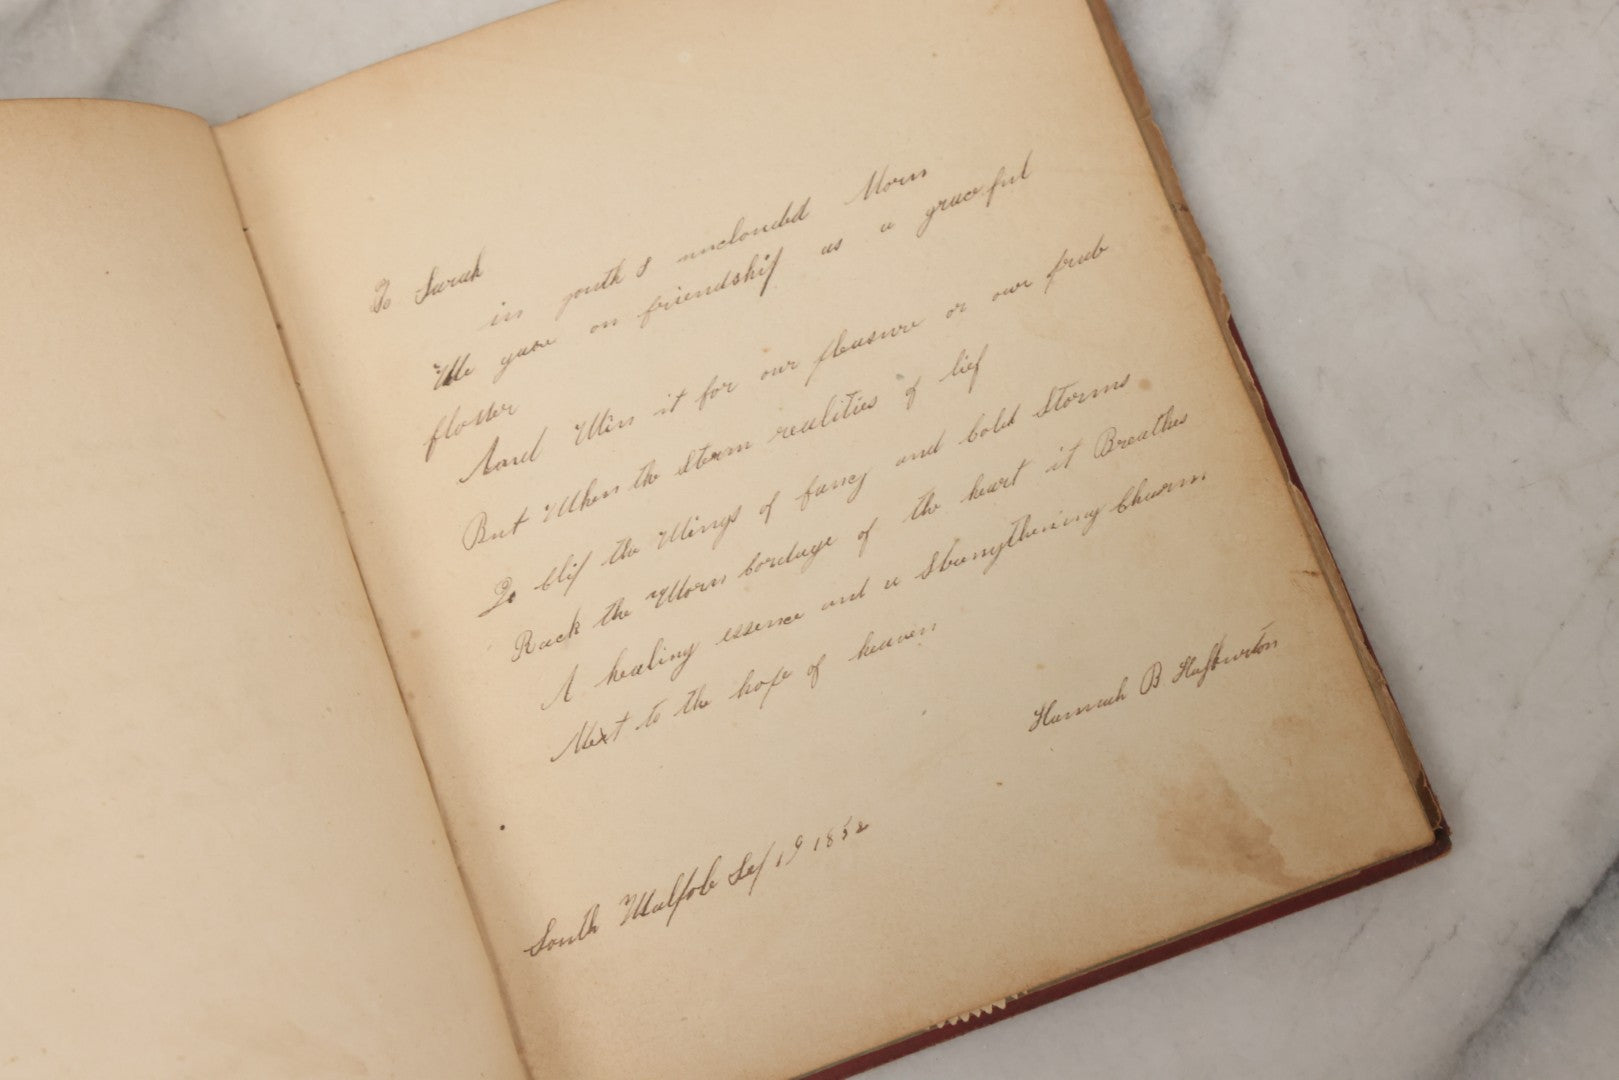 To Sarah
in youth s unclouded Morn
We gase on friendship as a graceful
flower
And Win it for our pleasure or our frub
But When the stern realities of lief
To Clip the Wings of fancy and Cold Storms
Rack the Worn Cordage of the heart it Breathes
A healing essence and a Strengthening Charm.
Next to the hope of heaven
Hannah B
South Walpole Sep 19 1852